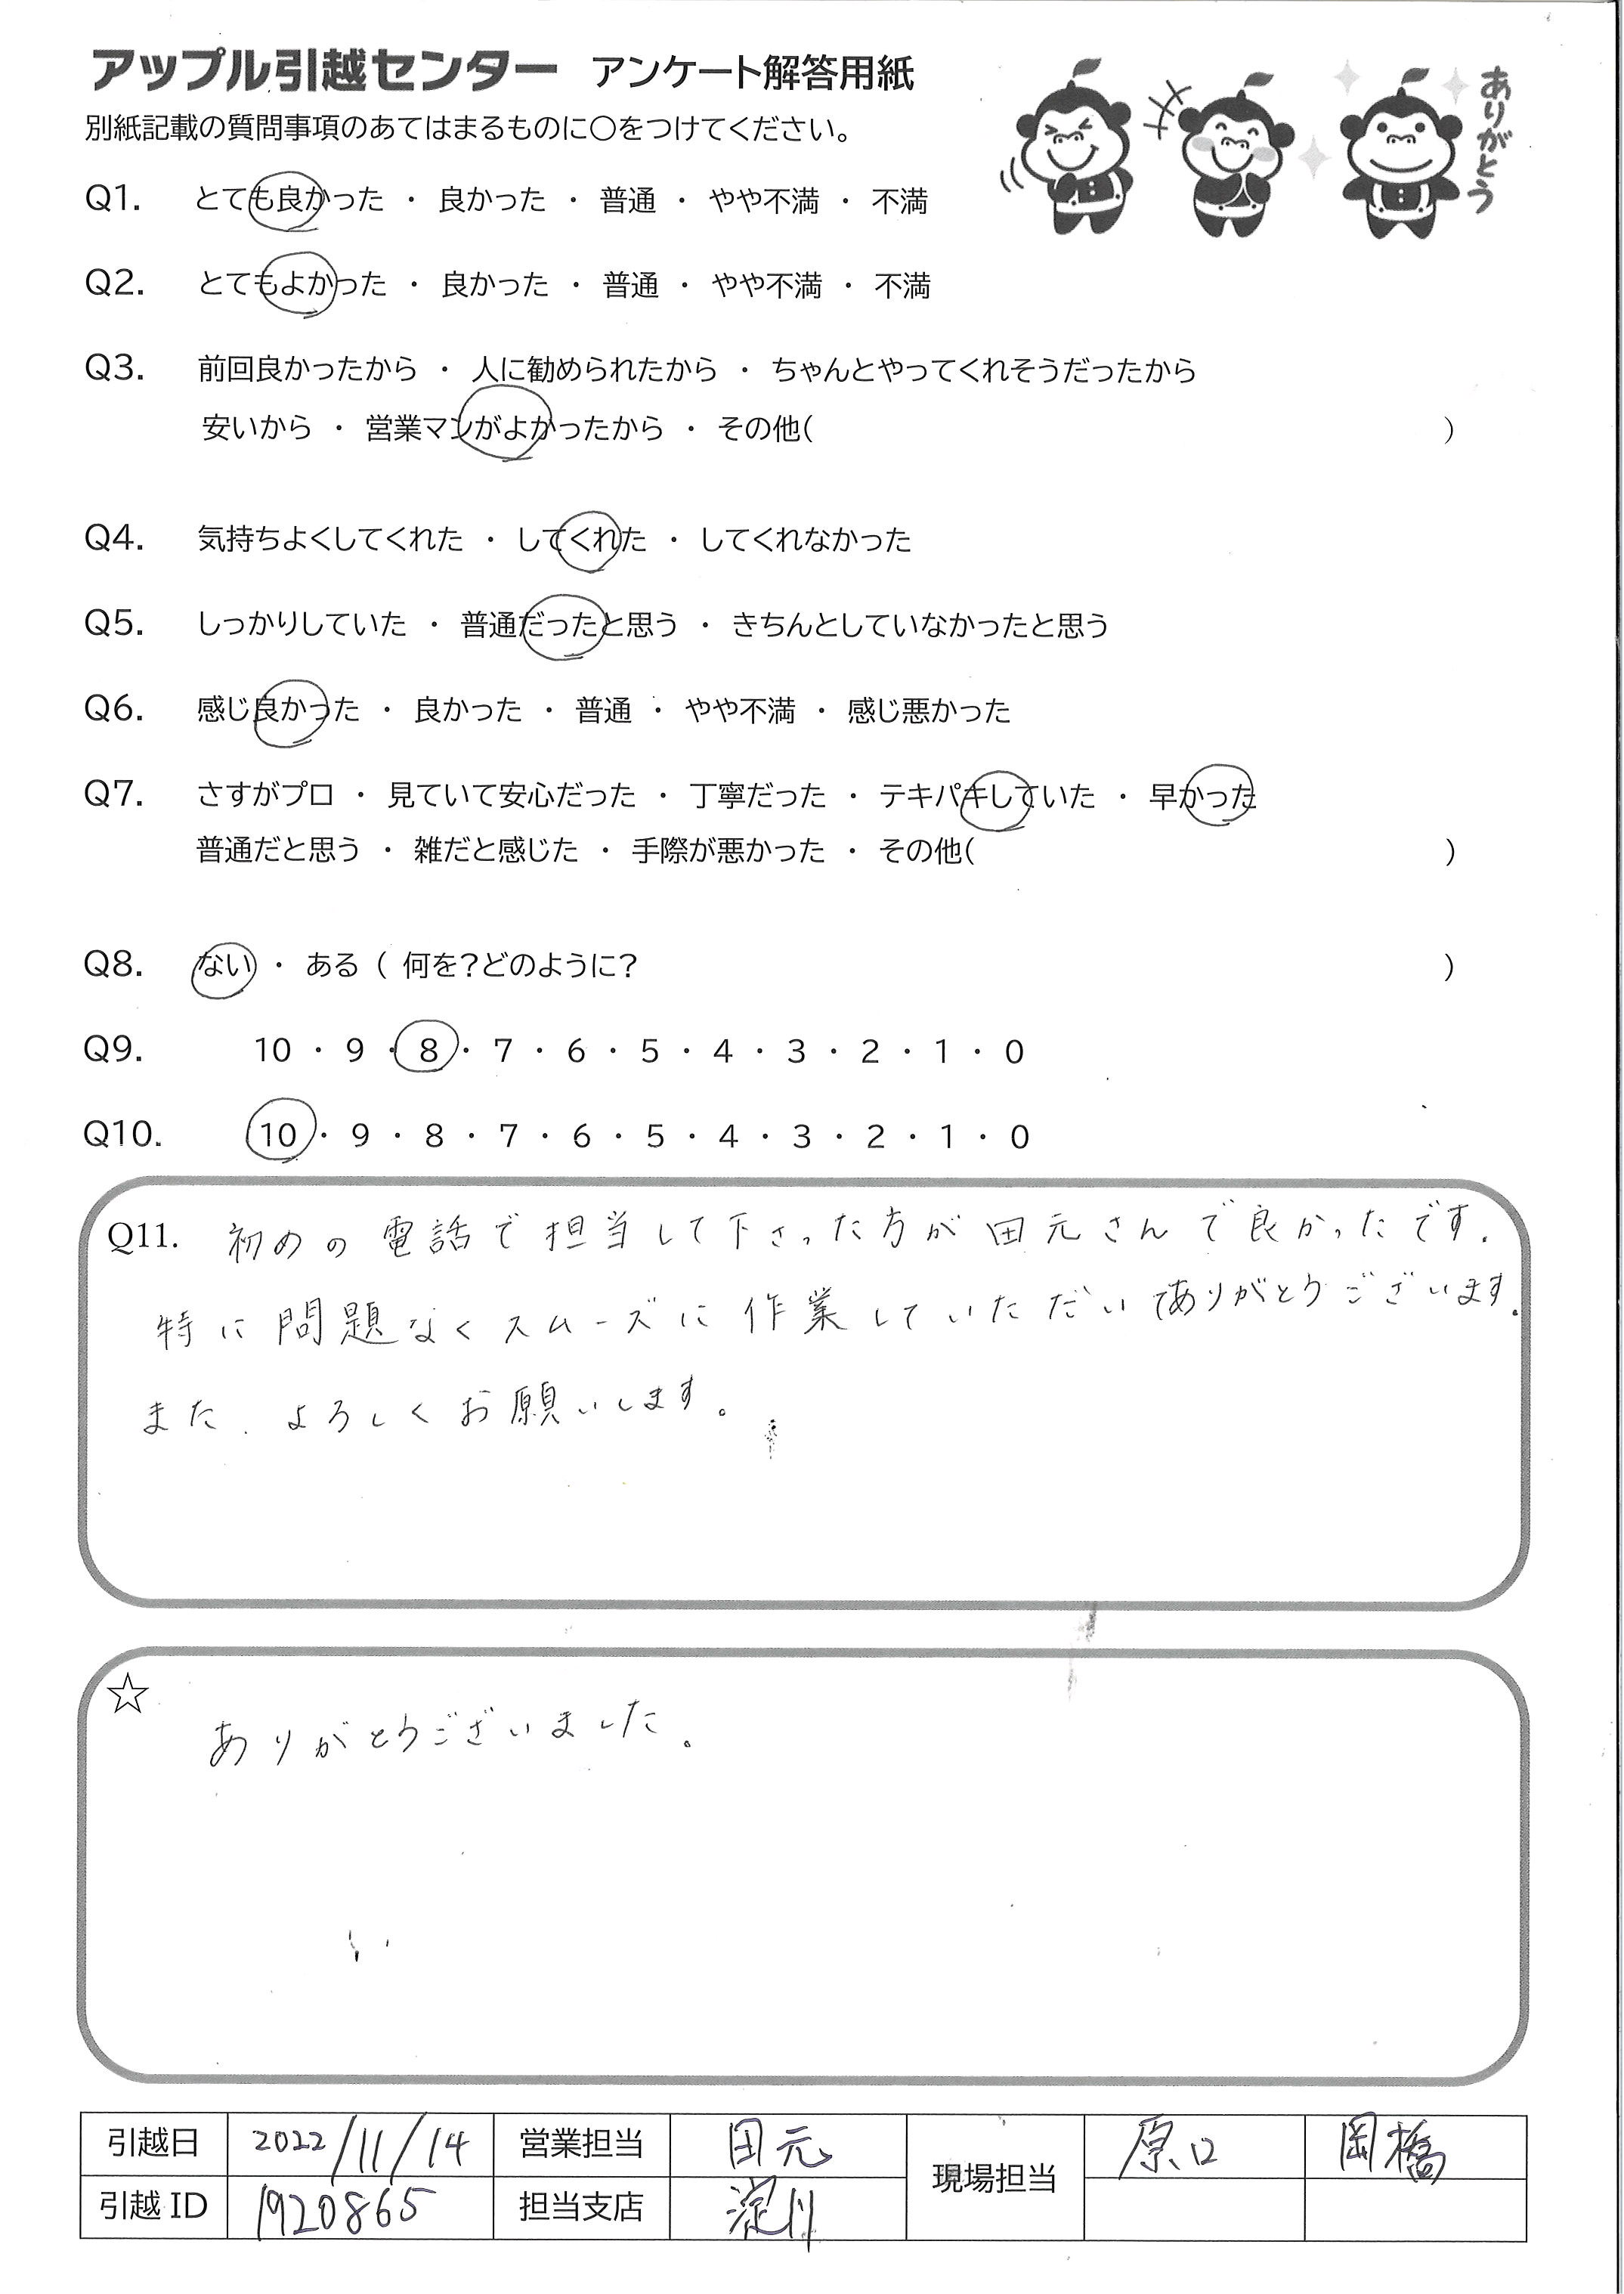 アップル引越センター アンケート解答用紙
ありがとう
別紙記載の質問事項のあてはまるものに○をつけてください。
Q1. とても良かった ・ 良かった ・ 普通 ・ やや不満 ・ 不満
Q2. とてもよかった ・ 良かった ・ 普通 ・ やや不満 ・ 不満
Q3. 前回良かったから ・ 人に勧められたから ・ ちゃんとやってくれそうだったから
安いから ・ 営業マンがよかったから ・ その他( )
Q4. 気持ちよくしてくれた ・ してくれた ・ してくれなかった
Q5. しっかりしていた ・ 普通だったと思う ・ きちんとしていなかったと思う
Q6. 感じ良かった ・ 良かった ・ 普通 ・ やや不満 ・ 感じ悪かった
Q7. さすがプロ ・ 見ていて安心だった ・ 丁寧だった ・ テキパキしていた ・ 早かった
普通だと思う ・ 雑だと感じた ・ 手際が悪かった ・ その他( )
Q8. ない ・ ある ( 何を?どのように? )
Q9. 10 ・ 9 ・ 8 ・ 7 ・ 6 ・ 5 ・ 4 ・ 3 ・ 2 ・ 1 ・ 0
Q10. 10 ・ 9 ・ 8 ・ 7 ・ 6 ・ 5 ・ 4 ・ 3 ・ 2 ・ 1 ・ 0
Q11. 初めの電話で担当して下さった方が田元さんで良かったです.
特に問題なくスムーズに作業していただいてありがとうございます.
また、よろしくお願いします。
☆
ありがとうございました。
引越日 2022/11/14 営業担当 田元 現場担当 原口 岡橋
引越ID 1920865 担当支店 淀川